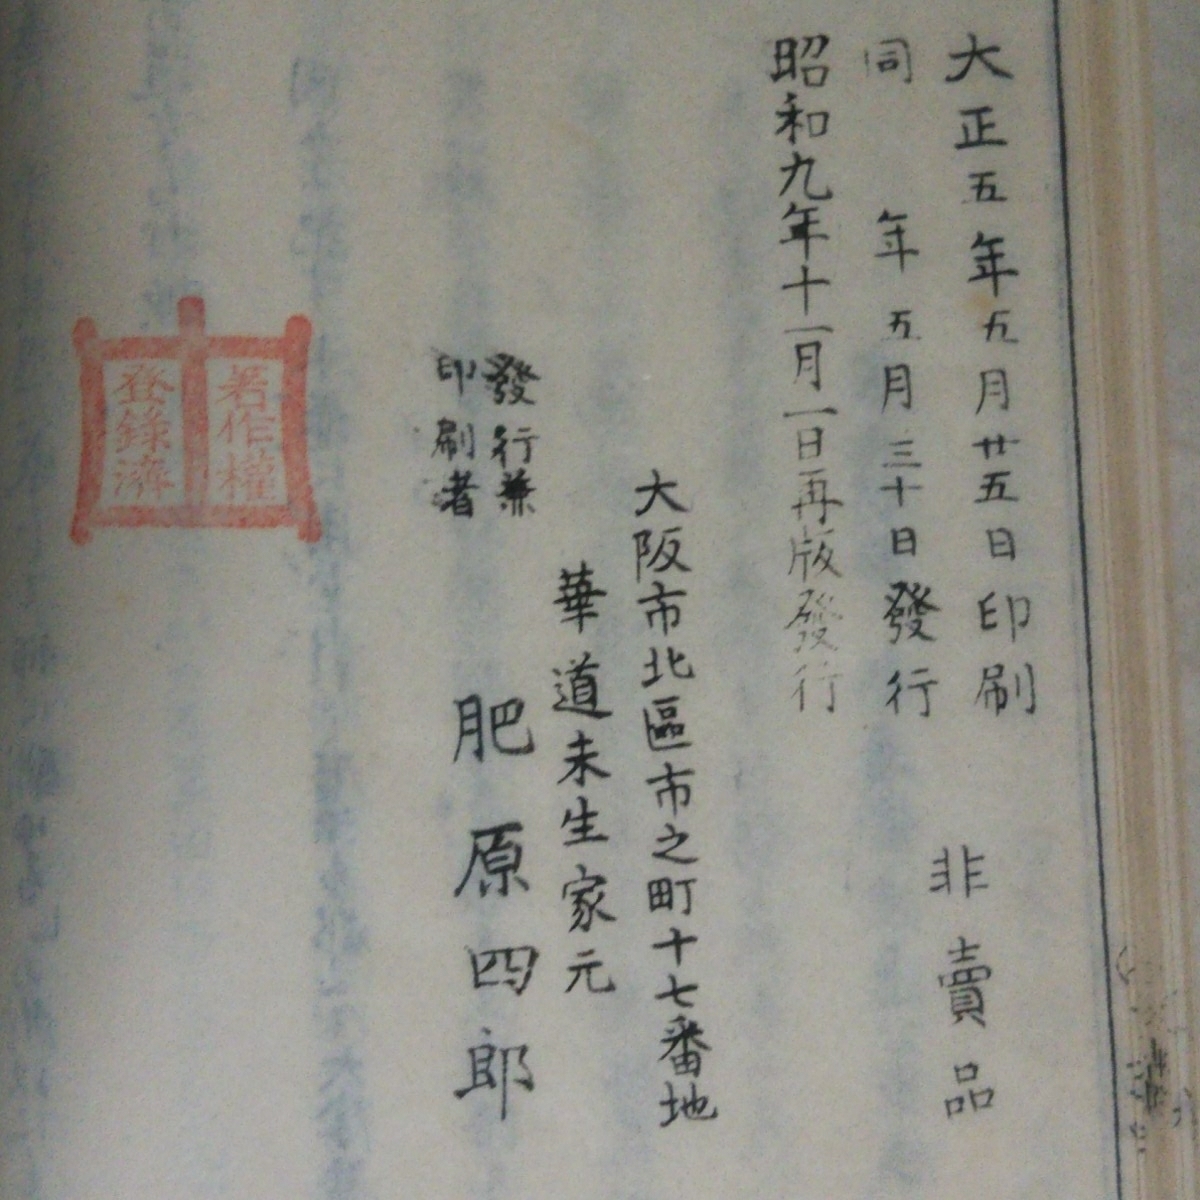 大正五年五月廿五日印刷
同 年 五月三十日發行
非賣品
昭和九年十一月一日再版發行
大阪市北區市之町十七番地
華道未生家元
發行兼
印刷者
肥原四郎
著作權
登錄濟